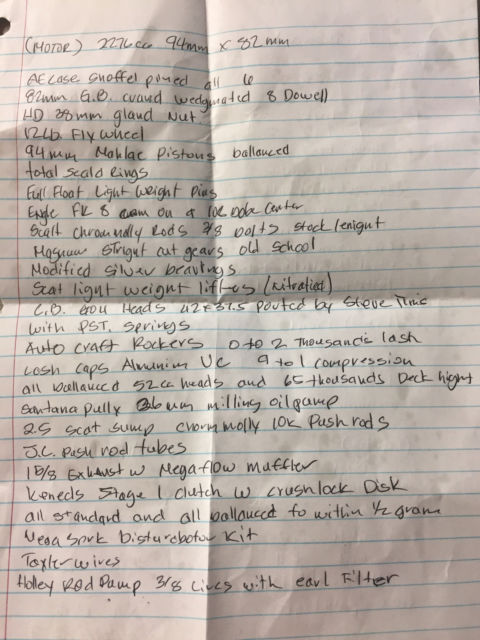 (MOTOR) 2276cc 94mm x 82mm
AE Case shoffel pined all 6
82mm G.B. crand wedgmated 8 Dowell
HD 28mm gland Nut.
12Lb. Fly wheel
94mm Mahlac Pistons ballanced
total Scald Rings
Full Float Light Weight Pins
Engle FK 8 on a Center
Scatt chromnolly Rods 3/8 bolts stock lenight
Magnum Stright cut gears old school
Modified silver bearings
Scat light weight liftes (Nitratied)
C.B. Heads 42 x 37.5 ported by Steve
with PST. Springs
Auto craft Rockers 0 to 2 Thousandts lash
Lash caps Almunim UC 9 to 1 compression
all ballanced 52cc heads and 65 thousands Deck hight
Santana pully 36mm milling oil pump
2.5 scat sump chormmolly 10k Push rods
J.C. Push rod tubes
1 5/8 Exhaust w Megaflow muffler
Keneds Stage 1 clutch w crushlock Disk
all standard and all ballanced to within 1/2 gram
Mega Spark Kit
Tayler wires
Holley Red Pump 3/8 Lines with earl Filter